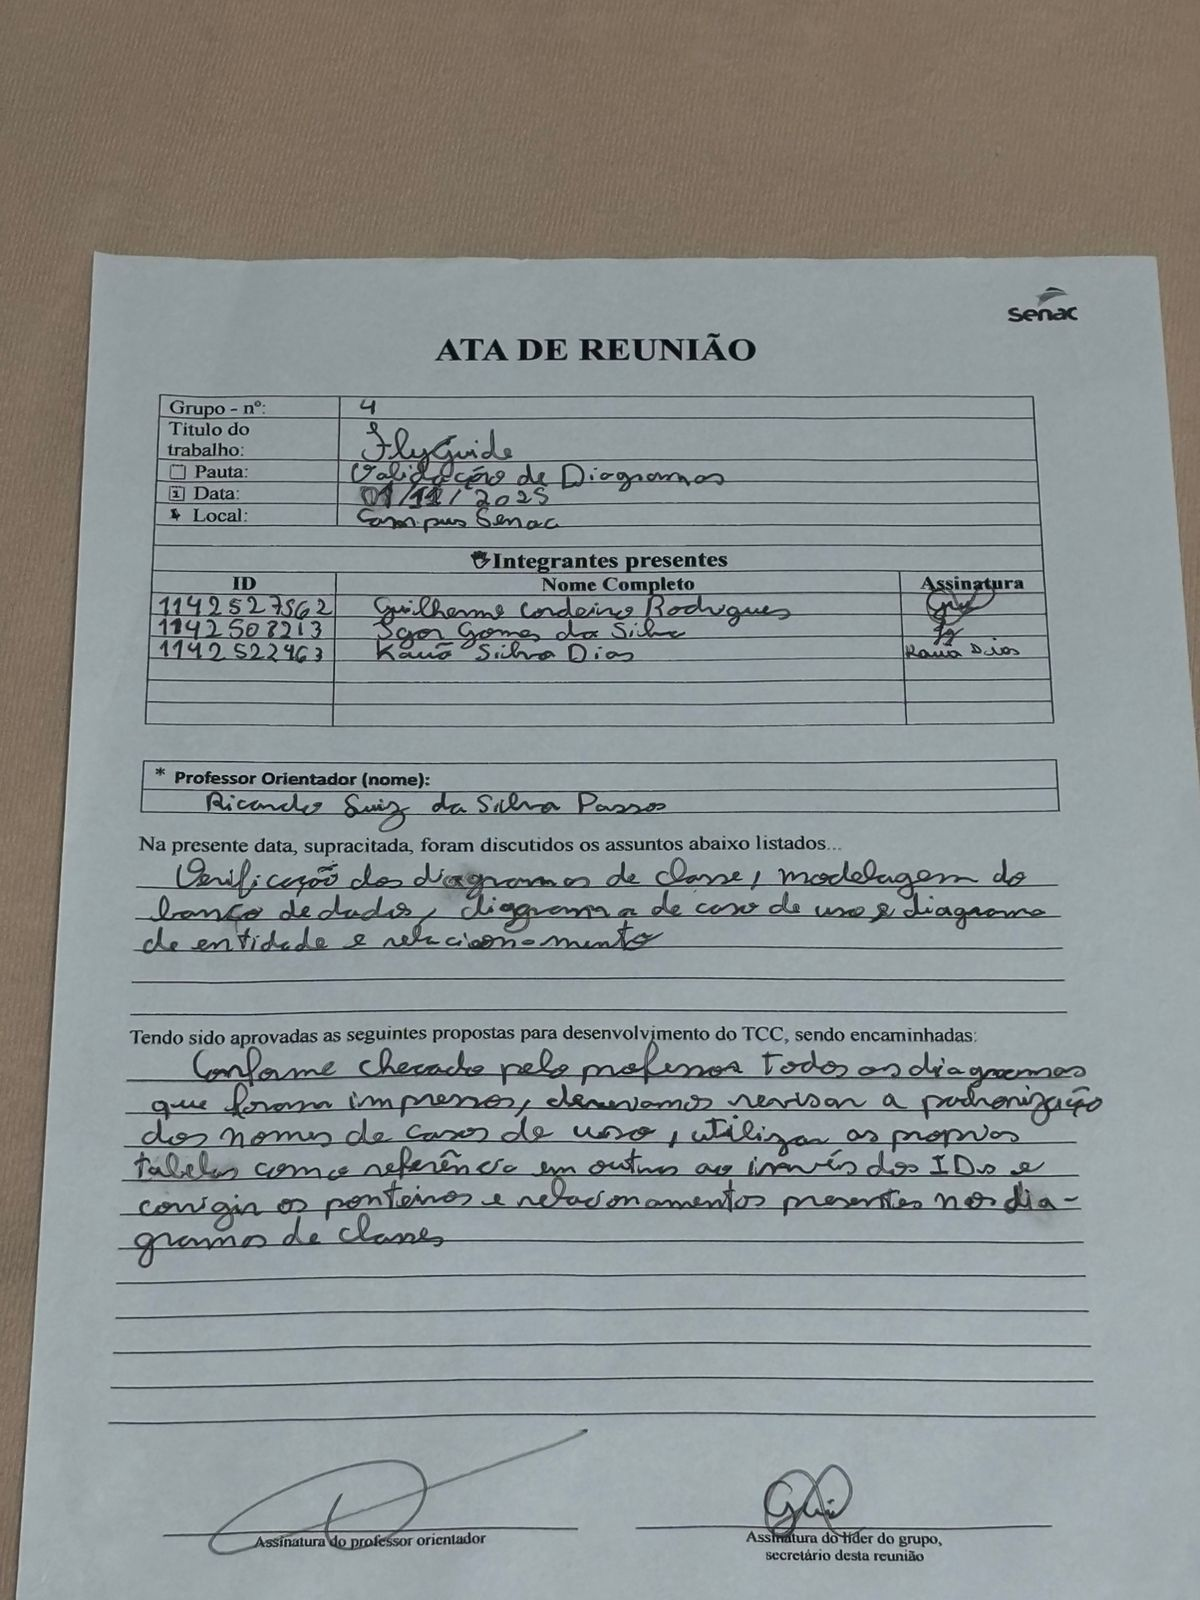 senac
ATA DE REUNIÃO
Grupo - nº: 4
Titulo do
trabalho: FlyGuide
Pauta: Validação de Diagramas
Data: 01/11/2025
Local: Campus Senac
Integrantes presentes
ID Nome Completo Assinatura
1142527562 Guilherme Cordeiro Rodrigues
1142508213 Igor Gomes da Silva
1142522463 Kauã Silva Dias Kauã Dias
* Professor Orientador (nome):
Ricardo Luiz da Silva Passos
Na presente data, supracitada, foram discutidos os assuntos abaixo listados...
Verificação dos diagramas de classe, modelagem do
banco de dados, diagrama de caso de uso e diagrama
de entidade e relacionamento
Tendo sido aprovadas as seguintes propostas para desenvolvimento do TCC, sendo encaminhadas:
Conforme checado pelo professor todos os diagramas
que foram impressos, devevamos revisar a padronização
dos nomes de casos de uso, utilizar as proprias
tabelas como referência em outras ao invés dos IDs e
corrigir os ponteiros e relacionamentos presentes nos dia-
gramas de classes
Assinatura do professor orientador
Assinatura do líder do grupo,
secretário desta reunião